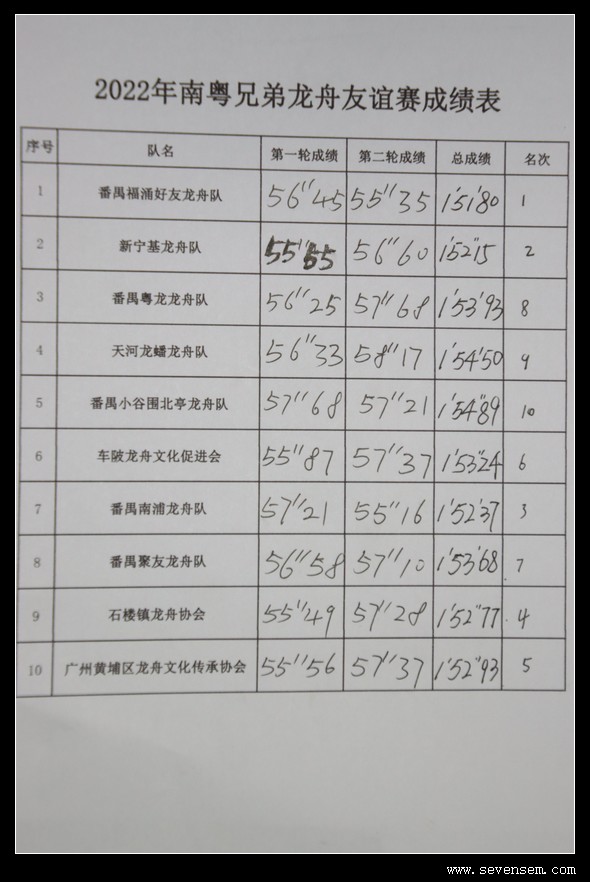 2022年南粤兄弟龙舟友谊赛成绩表
序号 队名 第一轮成绩 第二轮成绩 总成绩 名次
1 番禺福涌好友龙舟队 56"45 55"35 1'51'80 1
2 新宁基龙舟队 55"55 56"60 1'52"15 2
3 番禺粤龙龙舟队 56"25 57"68 1'53'93 8
4 天河龙蟠龙舟队 56"33 58"17 1'54'50 9
5 番禺小谷围北亭龙舟队 57"68 57"21 1'54"89 10
6 车陂龙舟文化促进会 55"87 57"37 1'53"24 6
7 番禺南浦龙舟队 57"21 55"16 1'52'37 3
8 番禺聚友龙舟队 56"58 57"10 1'53'68 7
9 石楼镇龙舟协会 55"49 57"28 1'52"77 4
10 广州黄埔区龙舟文化传承协会 55"56 57"37 1'52"93 5
www.sevensem.com